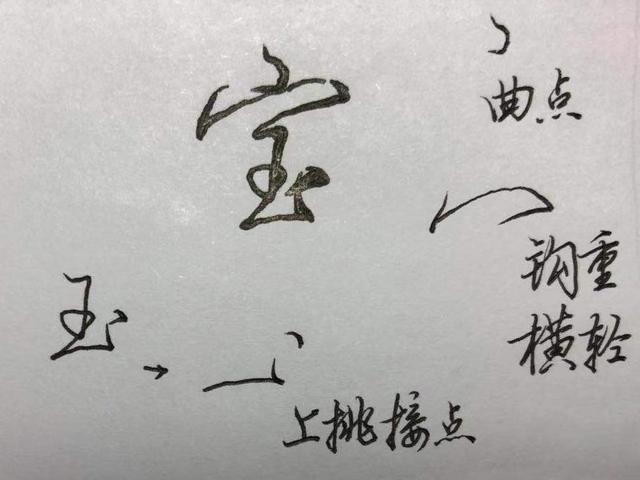 宝
曲点
钩重
横轻
玉→
上挑接点